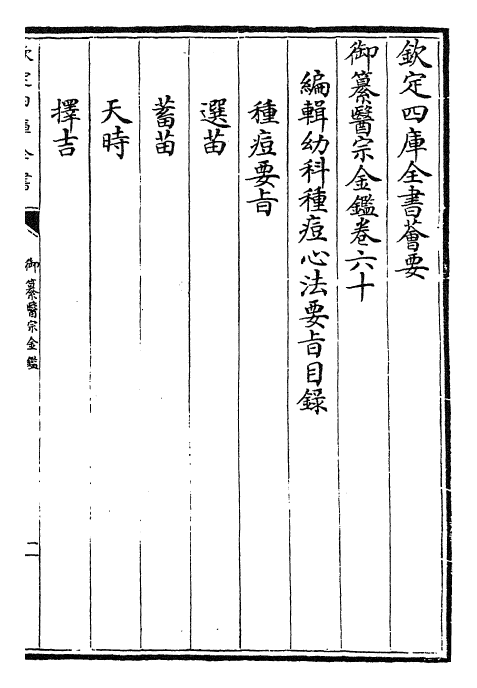 欽定四庫全書薈要
御纂醫宗金鑑卷六十
編輯幼科種痘心法要旨目錄
種痘要旨
選苗
蓄苗
天時
擇吉
御纂醫宗金鑑
二